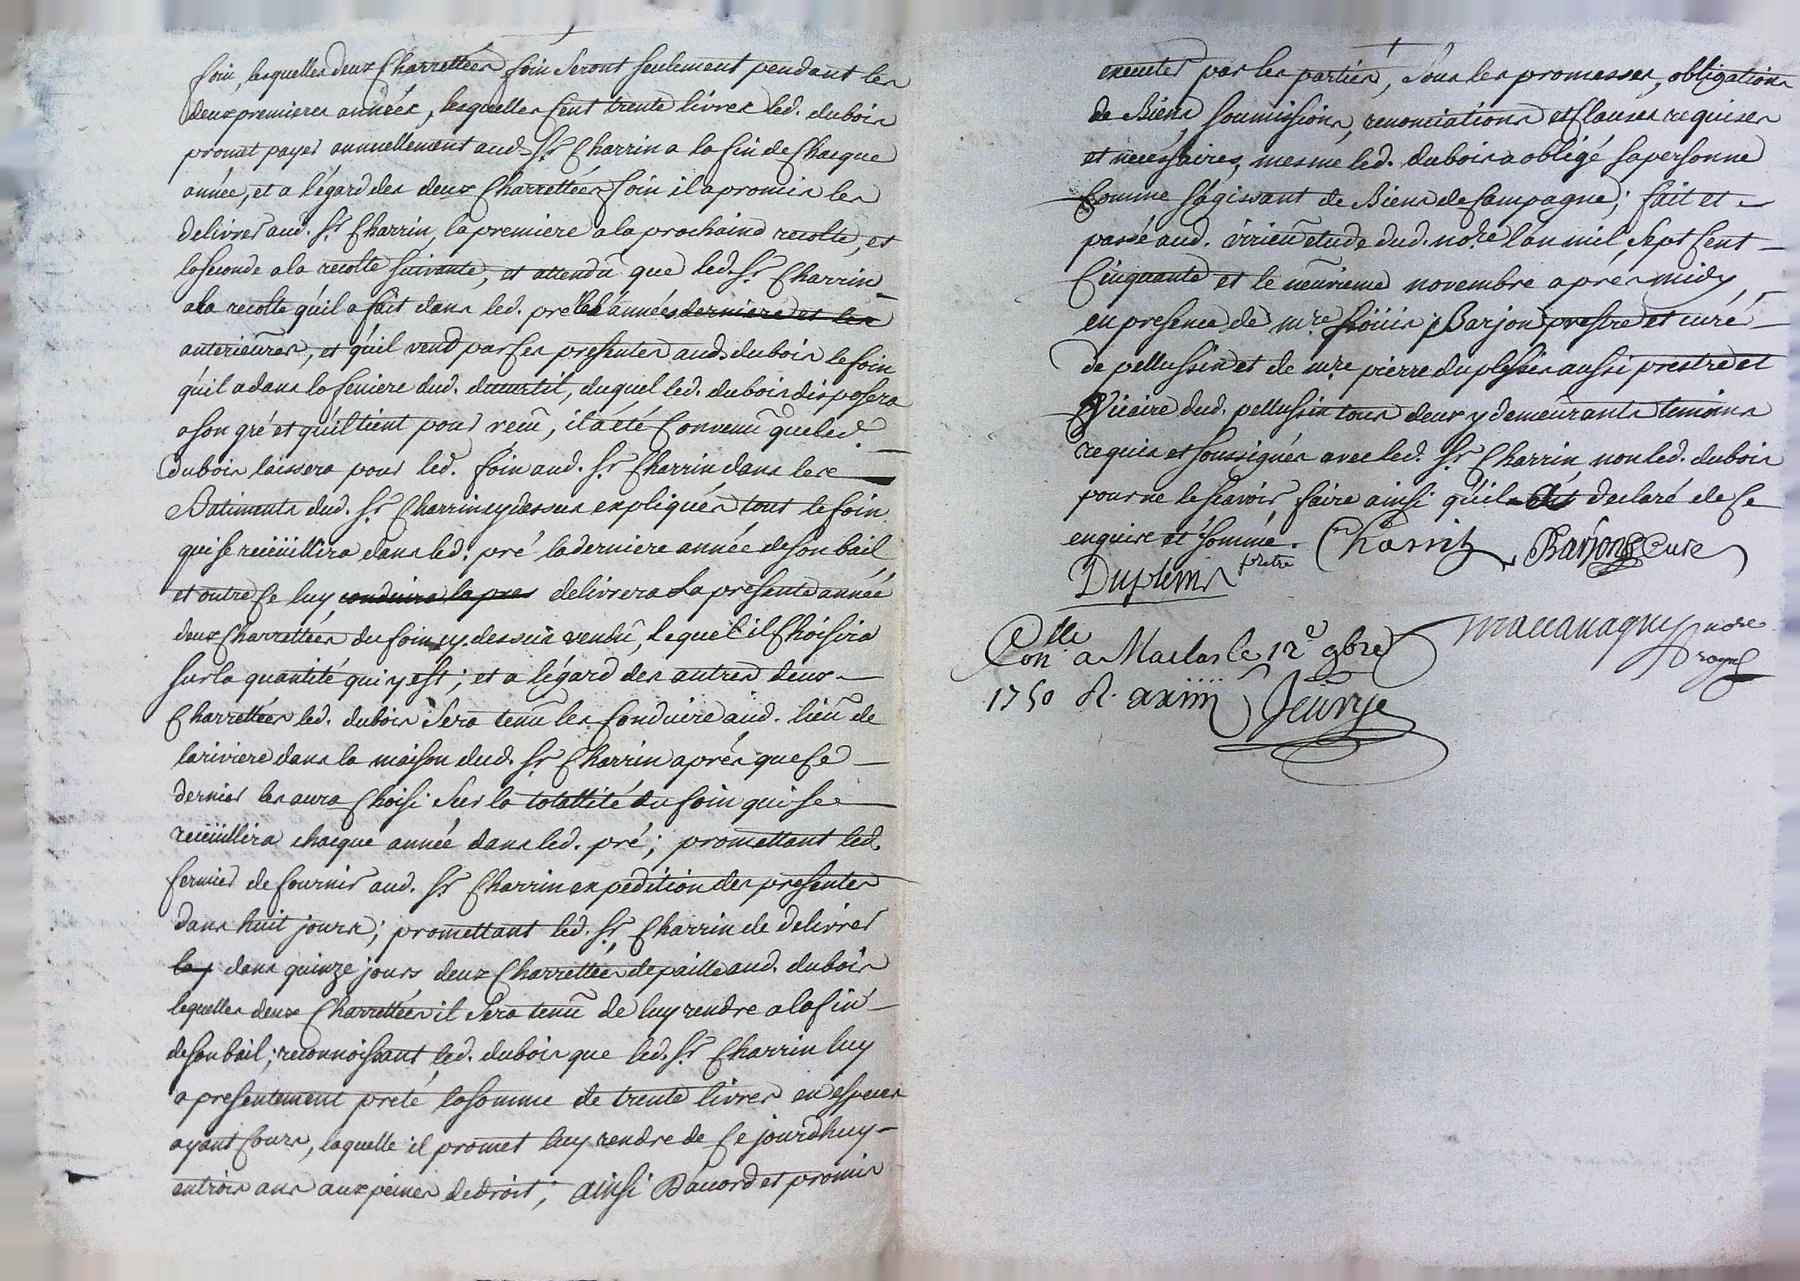 foin, lesquelles deux Charrettées foin seront seulement pendant les
deux premieres années, lesquelles Cent trente livres led. dubois
promet payer annuellement aud. Sr. Charrin a la fin de Chacque
année, et a l'égard des deux Charrettées foin il a promis les
delivrer aud. Sr. Charrin, la premiere a la prochaine recolte, et
la seconde a la recolte suivante, et attendû que led. Sr. Charrin
a la recolte qu'il a fait dans led. pré les années derniere et les
anterieûres, et qu'il vend par ses presentes aud. dubois le foin
qu'il a dans la feniere dud. duquel led. dubois disposera
a son gré et qu'il tient pour reçû, il a été Convenû que led.
dubois laissera pour led. foin aud. Sr. Charrin dans les
Batiments dud. Sr. Charrin cy dessus expliqués tout le foin
qui se recüillira dans led. pré la derniere année de son bail
et outre Ce luy conduira la pres delivrera la presente année
deux Charrettées du foin cy dessus vendû, lequel il Choisira
sur la quantité qui y est; et a l'égard des autres deux
Charrettées led. dubois sera tenû les Conduire aud. lieu de
lariviere dans la maison dud. Sr. Charrin aprés que Ce
dernier les aura Choisi sur la totallité du foin qui se
recüillira chacque année dans led. pré; promettant led.
fermier de fournir aud. Sr. Charrin expedition des presentes
dans huit jours; promettant led. Sr. Charrin de delivrer
dans quinze jours deux Charrettées de paille aud. dubois
lequelles deux Charrettées il sera tenû de luy rendre a la fin
de son bail; reconnoissant led. dubois que led. Sr. Charrin luy
a presentement preté la somme de trente livres en especes
ayant Cours, laquelle il promet luy rendre de Ce jourdhuy
en trois ans aux peines de droit; ainsi D'accord et promis
executer par les parties, sous les promesses, obligations
de Biens, soumissions, renonciations et Clauses requises
et necessaires, mesme led. dubois a obligé sa personne
Comme s'agissant de Biens de Campagne; fait et
passé aud. virieu etude dud. nore. l'an mil sept Cent
Cinquante et le neuvieme novembre aprés midy,
en presence de mre. Loüis Barjon prestre et curé
de pellussin et de mre. pierre duplessis aussi prestre et
Vicaire dud. pellussin tous deux y demeurants temoins
requis et soussignés avec led. Sr. Charrin, non led. dubois
pour ne le scavoir faire ainsi qu'il a declaré de Ce
enquis et sommé. Charrin Barjon Curé
Duplessis prêtre
Conlle. a Maclas le 12e 9bre
1750 R. nore
royal